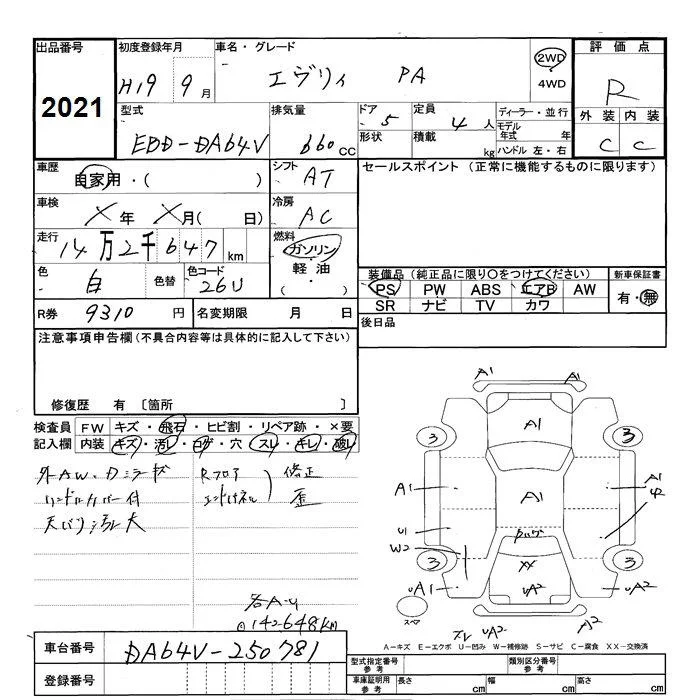 出品番号 初度登録年月 車名・グレード 2WD 評価点
2021 H19 9月 エヴリィ PA 4WD R
型式 排気量 ドア 定員 ディーラー・並行 外装 内装
EBD-DA64V 660cc 5 4人 モデル年式 年 C C
形状 積載 kg ハンドル 左・右
車歴 自家用・( ) シフト AT セールスポイント (正常に機能するものに限ります)
車検 X年 X月( 日) 冷房 AC
走行 14万2千647km 燃料 ガソリン 軽油 ( ・ )
色 白 色替 色コード 26U 装備品 (純正品に限り○をつけてください) 新車保証書
PS PW ABS エアB AW 有・無
R券 9310円 名変期限 月 日 SR ナビ TV カワ
注意事項申告欄 (不具合内容等は具体的に記入して下さい) 後日品
修復歴 有 〔箇所 〕
検査員 FW キズ・飛石・ヒビ割・リペア跡・×要
記入欄 内装 キズ・汚レ・コゲ・穴・スレ・キレ・破レ
外AW、Dミラーキズ Rフロア 修正
ハンドルカバー付 エンドパネル 歪
天バリ汚レ大
各A-U
142648KM
A1 A1
A1
3 3
A1 A1 A1
中
U1
W2
XX
3 3
uA1 uA2 uA2
スペア uA2
A=キズ E=エクボ U=凹み W=補修跡 S=サビ C=腐食 XX=交換済
車台番号 DA64V-250781
登録番号
型式指定番号 参考 類別区分番号 参考
車庫証明用 参考 長さ cm 幅 cm 高さ cm